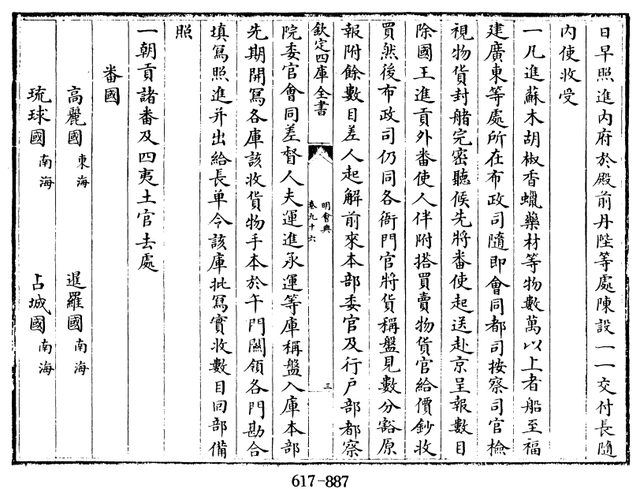 日早照進内府於殿前丹陛等處陳設一一交付長隨
内使收受
一凡進蘇木胡椒香蠟藥材等物數萬以上者船至福
建廣東等處所在布政司隨即會同都司按察司官檢
視物貨封艙完密聽候先將番使起送赴京呈報數目
除國王進貢外番使人伴附搭買賣物貨官給價鈔收
買然後布政司仍同各衙門官將貨稱盤見數分豁原
報附餘數目差人起解前來本部委官及行户部都察
欽定四庫全書
明會典
卷九十六
三
院委官會同差督人夫運進承運等庫稱盤入庫本部
先期開寫各庫該收貨物手本於午門關領各門勘合
填寫照進并出給長单令該庫批寫實收數目回部備
照
一朝貢諸番及四夷土官去處
番國
高麗國 東海 暹羅國 南海
琉球國 南海 占城國 南海
617-887